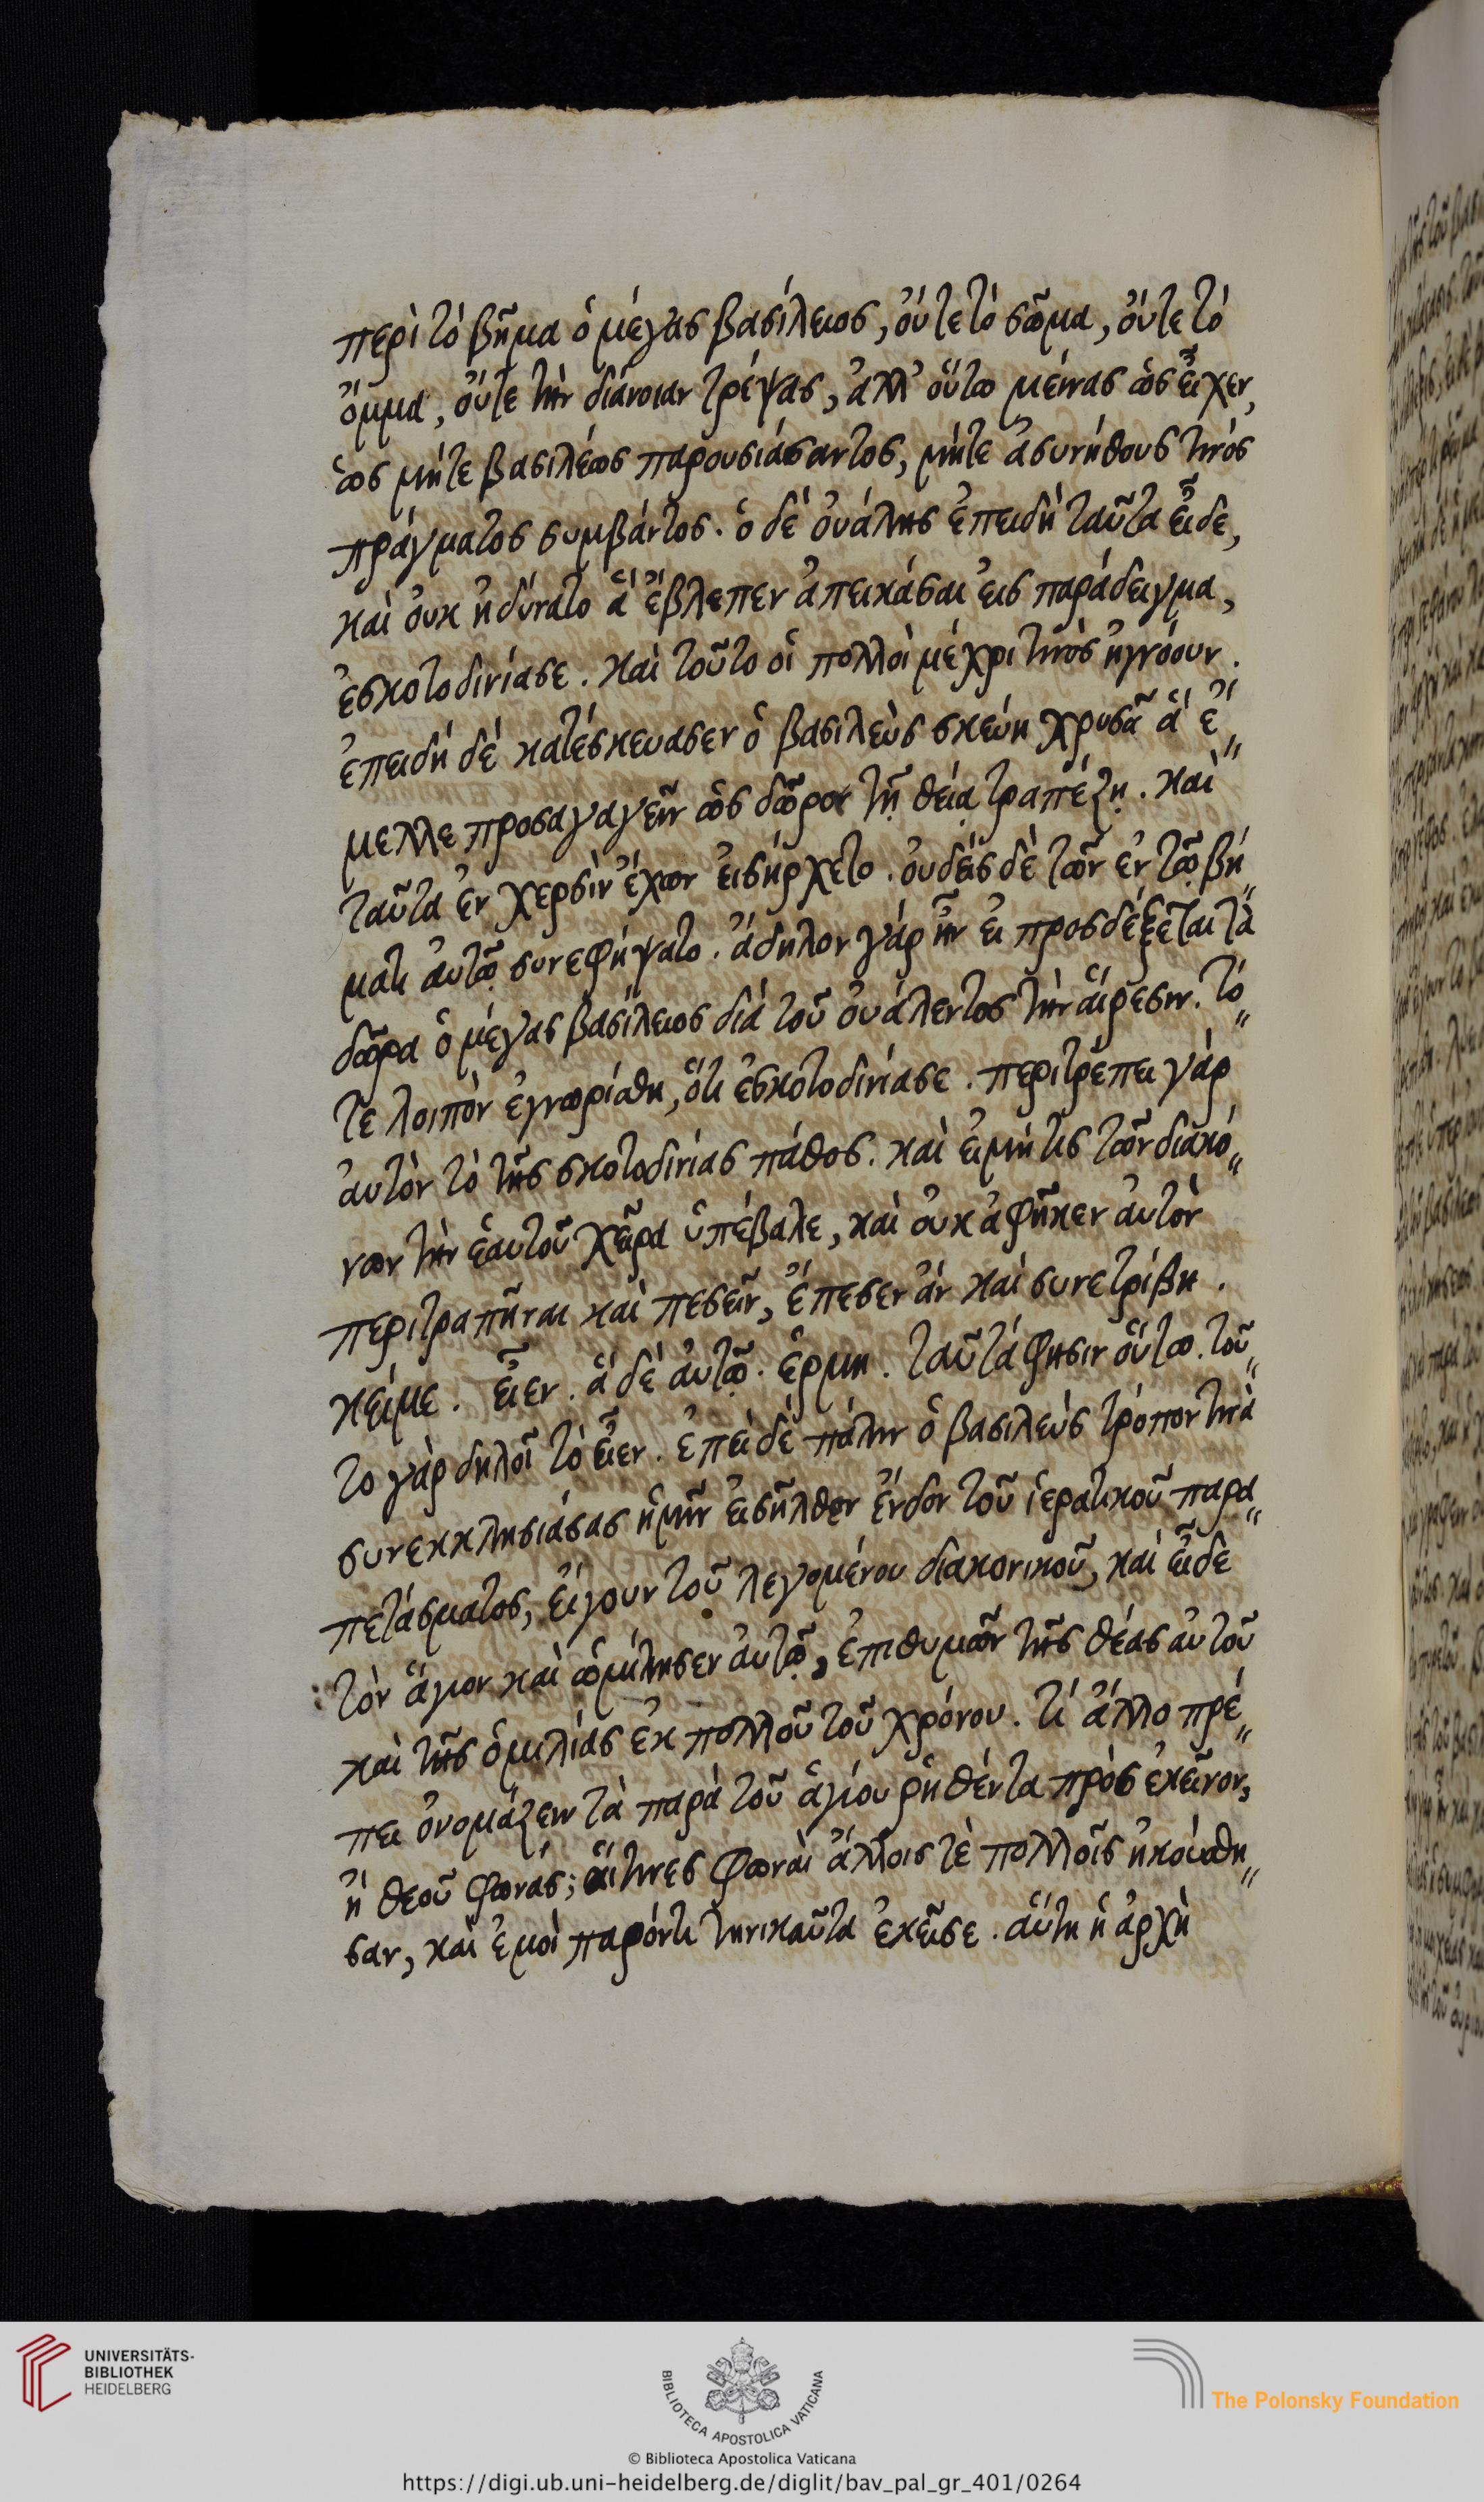 περὶ τὸ βῆμα ὁ μέγας βασίλειος, οὔτε τὸ σῶμα, οὔτε τὸ
ὄμμα, οὔτε τὴν διάνοιαν τρέψας, ἀλλ' οὕτω μείνας ὡς εἶχεν,
ὡς μήτε βασιλέως παρουσιάσαντος, μήτε ἀσυνήθους τινὸς
πράγματος συμβάντος. ὁ δὲ οὐάλης ἐπειδὴ ταῦτα εἶδε,
καὶ οὐκ ἠδύνατο ἃ ἔβλεπεν ἀπεικάσαι εἰς παράδειγμα,
ἐσκοτοδινίασε. καὶ τοῦτο οἱ πολλοὶ μέχρι τινὸς ἠγνόουν.
ἐπειδὴ δὲ κατέσκευασεν ὁ βασιλεὺς σκεύη χρυσᾶ ἃ ἔ„
μελλε προσαγαγεῖν ὡς δῶρον τῇ θείᾳ τραπέζῃ. καὶ„
ταῦτα ἐν χερσὶν ἔχων εἰσήρχετο. οὐδεὶς δὲ τῶν ἐν τῷ βή„
ματι αὐτῷ συνεφήψατο. ἄδηλον γὰρ ἦν εἰ προσδέξεται τὰ
δῶρα ὁ μέγας βασίλειος διὰ τοῦ οὐάλεντος τὴν αἵρεσιν. τό„
τε λοιπὸν ἐγνωρίσθη, ὅτι ἐσκοτοδινίασε. περιτρέπει γὰρ
αὐτὸν τὸ τῆς σκοτοδινίας πάθος. καὶ εἰμή τις τῶν διακό„
νων τὴν ἑαυτοῦ χεῖρα ὑπέβαλε, καὶ οὐκ ἀφῆκεν αὐτὸν
περιτραπῆναι καὶ πεσεῖν, ἔπεσεν ἂν καὶ συνετρίβη.
κείμε. εἶεν. ἃ δὲ αὐτῷ. ἑρμη. ταῦτά φησιν οὕτω. τοῦ„
το γὰρ δηλοῖ τὸ εἶεν. ἐπεὶ δὲ πάλιν ὁ βασιλεὺς τρόπον τινὰ
συνεκκλησιάσας ἡμῖν εἰσῆλθεν ἔνδον τοῦ ἱερατικοῦ παρα„
πετάσματος, εἴγουν τοῦ λεγομένου διακονικοῦ, καὶ εἶδε
τὸν ἅγιον καὶ ὡμίλησεν αὐτῷ, ἐπιθυμῶν τῆς θέας αὐτοῦ
καὶ τῆς ὁμιλίας ἐκ πολλοῦ τοῦ χρόνου. τί ἄλλο πρέ„
πει ὀνομάζειν τὰ παρὰ τοῦ ἁγίου ῥηθέντα πρὸς ἐκεῖνον,
ἢ θεοῦ φωνάς; αἵτινες φωναὶ ἄλλοις τὲ πολλοῖς ἠκούσθη„
σαν, καὶ ἐμοὶ παρόντι τηνικαῦτα ἐκεῖσε. αὕτη ἡ ἀρχὴ
UNIVERSITÄTS-
BIBLIOTHEK
HEIDELBERG
BIBLIOTECA APOSTOLICA VATICANA
The Polonsky Foundation
© Biblioteca Apostolica Vaticana
https://digi.ub.uni-heidelberg.de/diglit/bav_pal_gr_401/0264